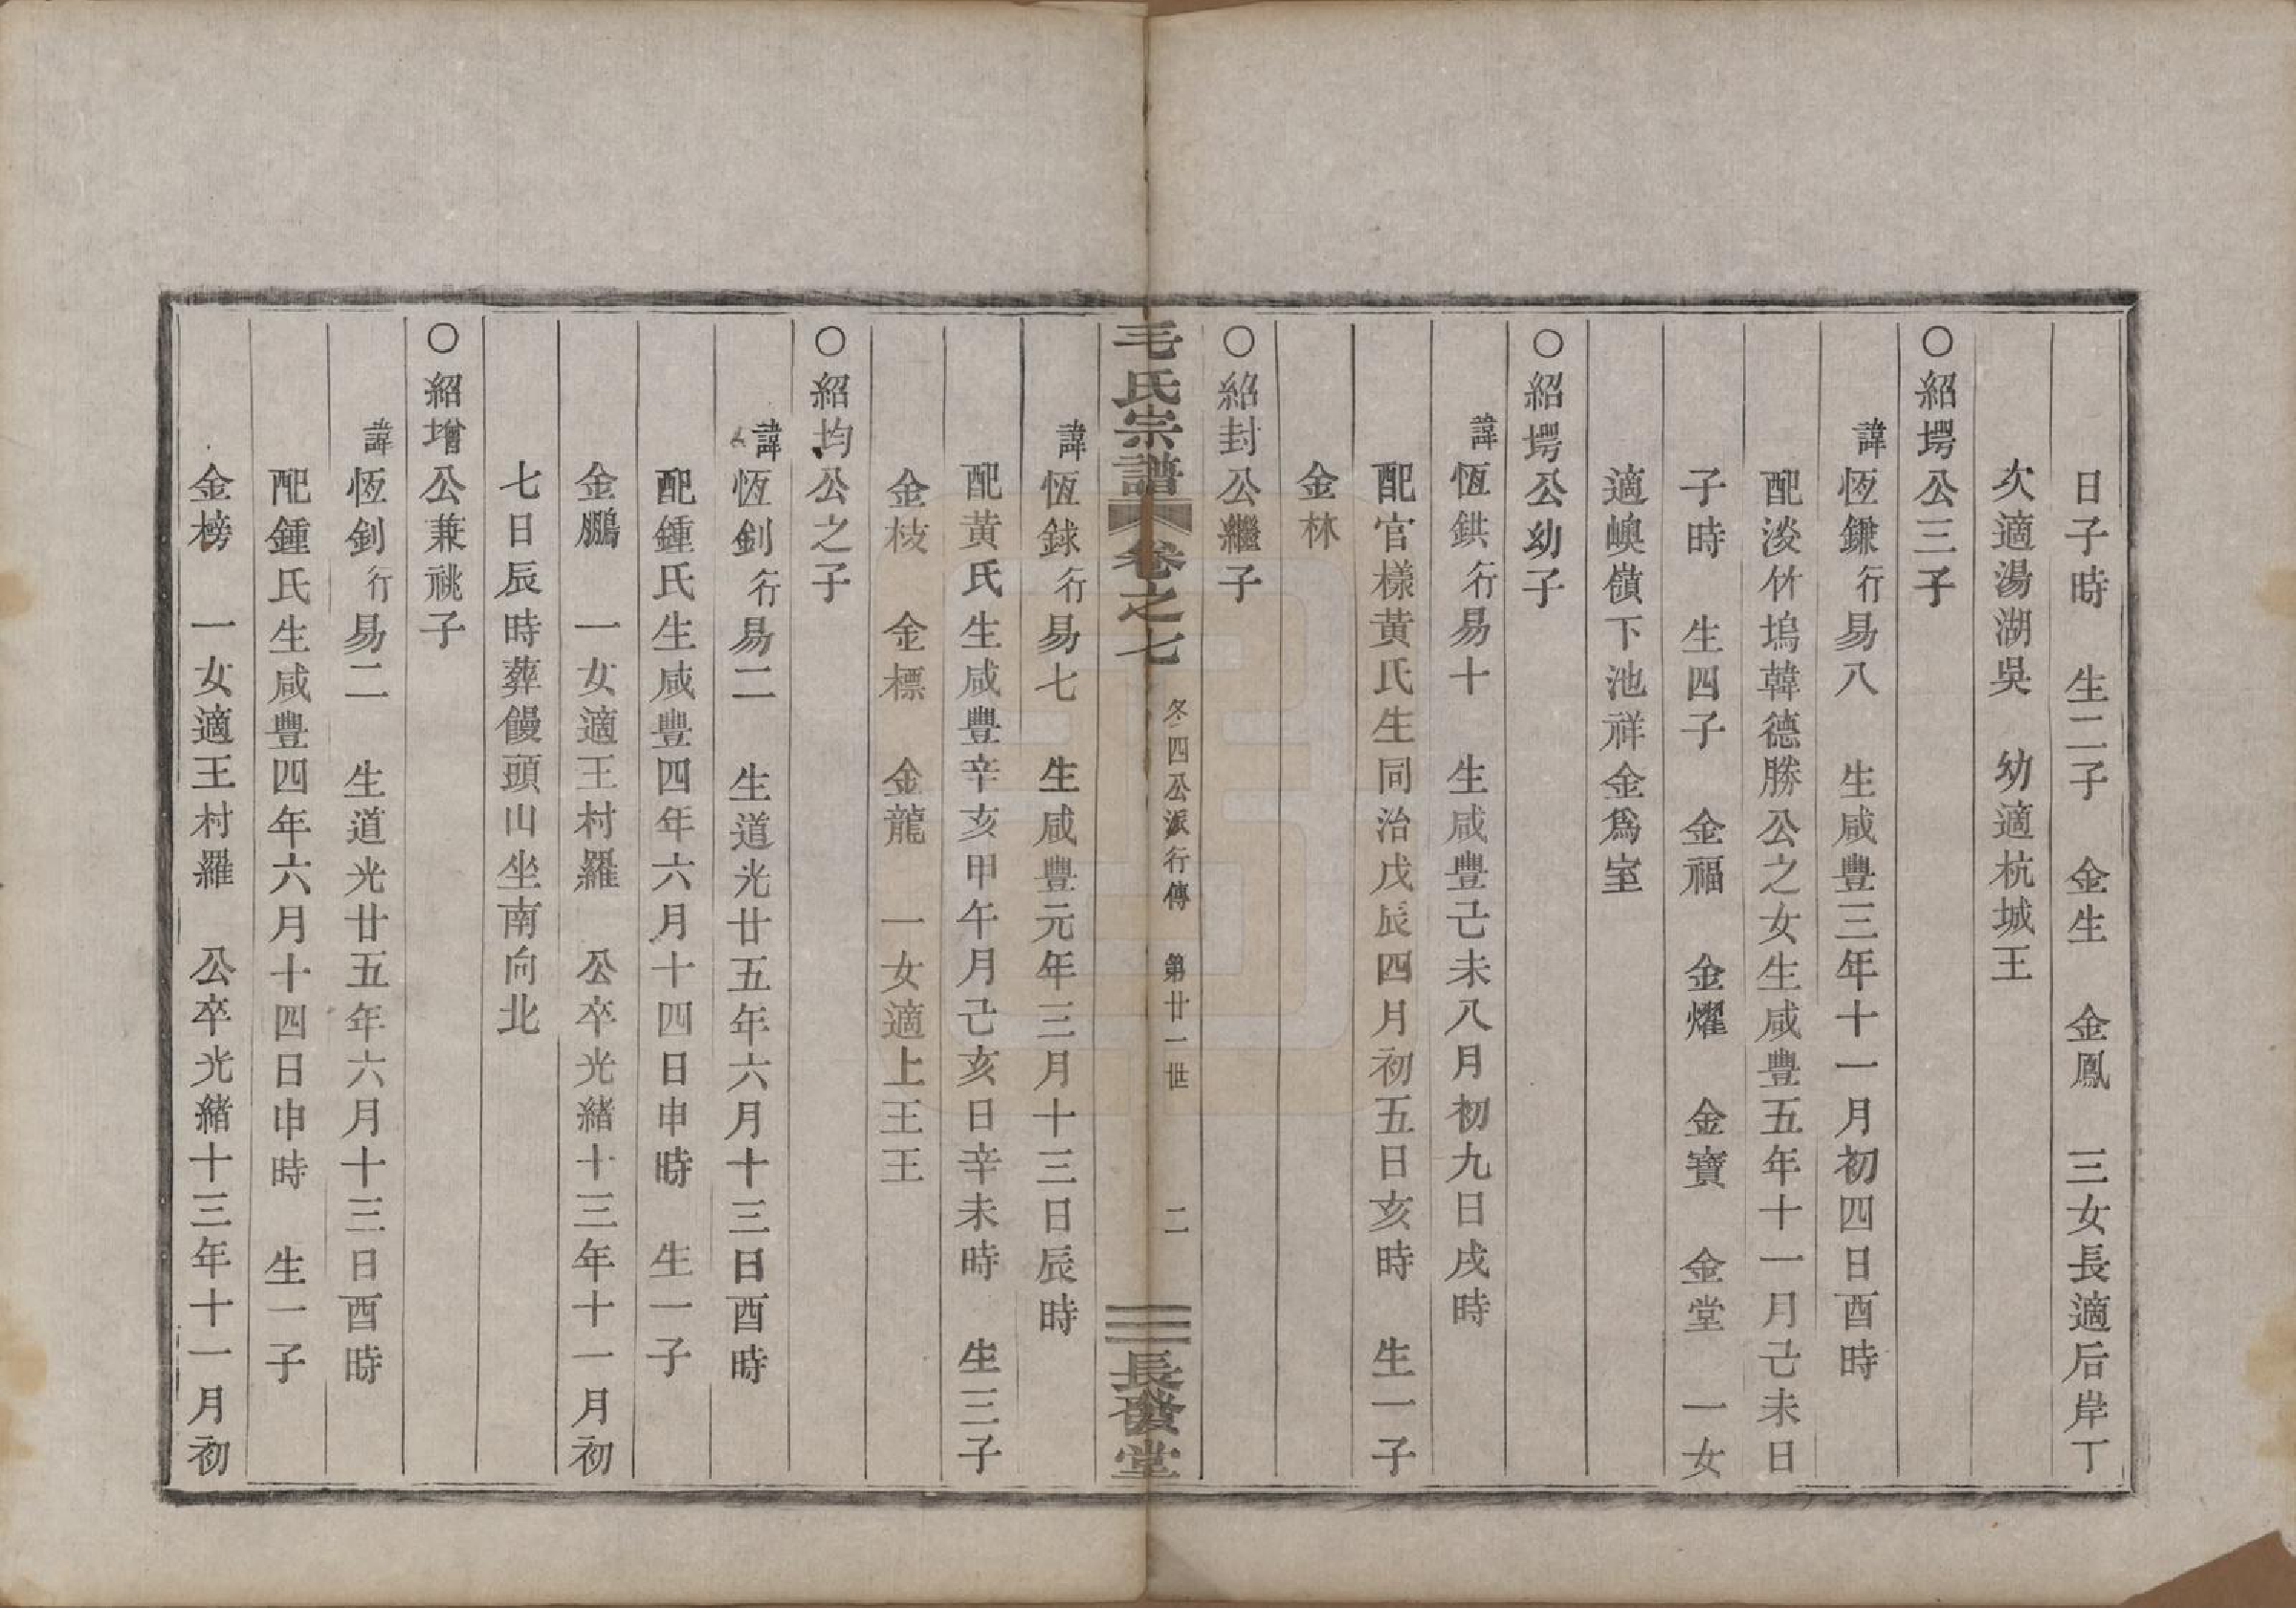 日子時　生二子　金生　金鳳　三女長適后岸丁
次適湯湖吳　幼適杭城王
○紹堮公三子
諱恆鎌行易八　生咸豐三年十一月初四日酉時
配淡竹塢韓德勝公之女生咸豐五年十一月己未日
子時　生四子　金福　金燿　金寶　金堂　一女
適嶼嶺下池祥金爲室
○紹堮公幼子
諱恆鉷行易十　生咸豐己未八月初九日戌時
配官樣黃氏生同治戊辰四月初五日亥時　生一子
金林
○紹封公繼子
毛氏宗譜　卷之七　冬四公派行傳　第廿一世　二　長發堂
諱恆銶行易七　生咸豐元年三月十三日辰時
配黃氏生咸豐辛亥甲午月己亥日辛未時　生三子
金枝　金標　金龍　一女適上王王
○紹均公之子
諱恆釗行易二　生道光廿五年六月十三日酉時
配鍾氏生咸豐四年六月十四日申時　生一子
金鵬　一女適王村羅　公卒光緒十三年十一月初
七日辰時葬饅頭山坐南向北
○紹增公兼祧子
諱恆釗行易二　生道光廿五年六月十三日酉時
配鍾氏生咸豐四年六月十四日申時　生一子
金榜　一女適王村羅　公卒光緒十三年十一月初